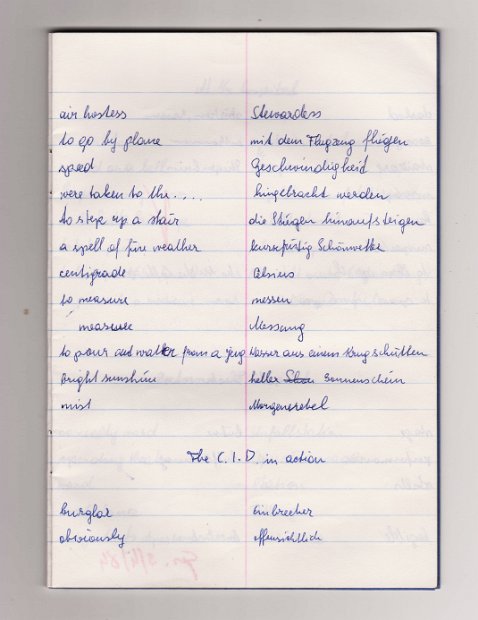 air hostess Stewardess
to go by plane mit dem Flugzeug fliegen
speed Geschwindigkeit
were taken to the .... hingebracht werden
to step up a stair die Stiegen hinaufsteigen
a spell of fine weather kurzfristig Schönwetter
centigrade Celsius
to measure messen
measure Messung
to pour out water from a jug Wasser aus einem Krug schütten
bright sunshine heller Sonnenschein
mist Morgennebel
The C.I.D. in action
burglar Einbrecher
obviously offensichtlich